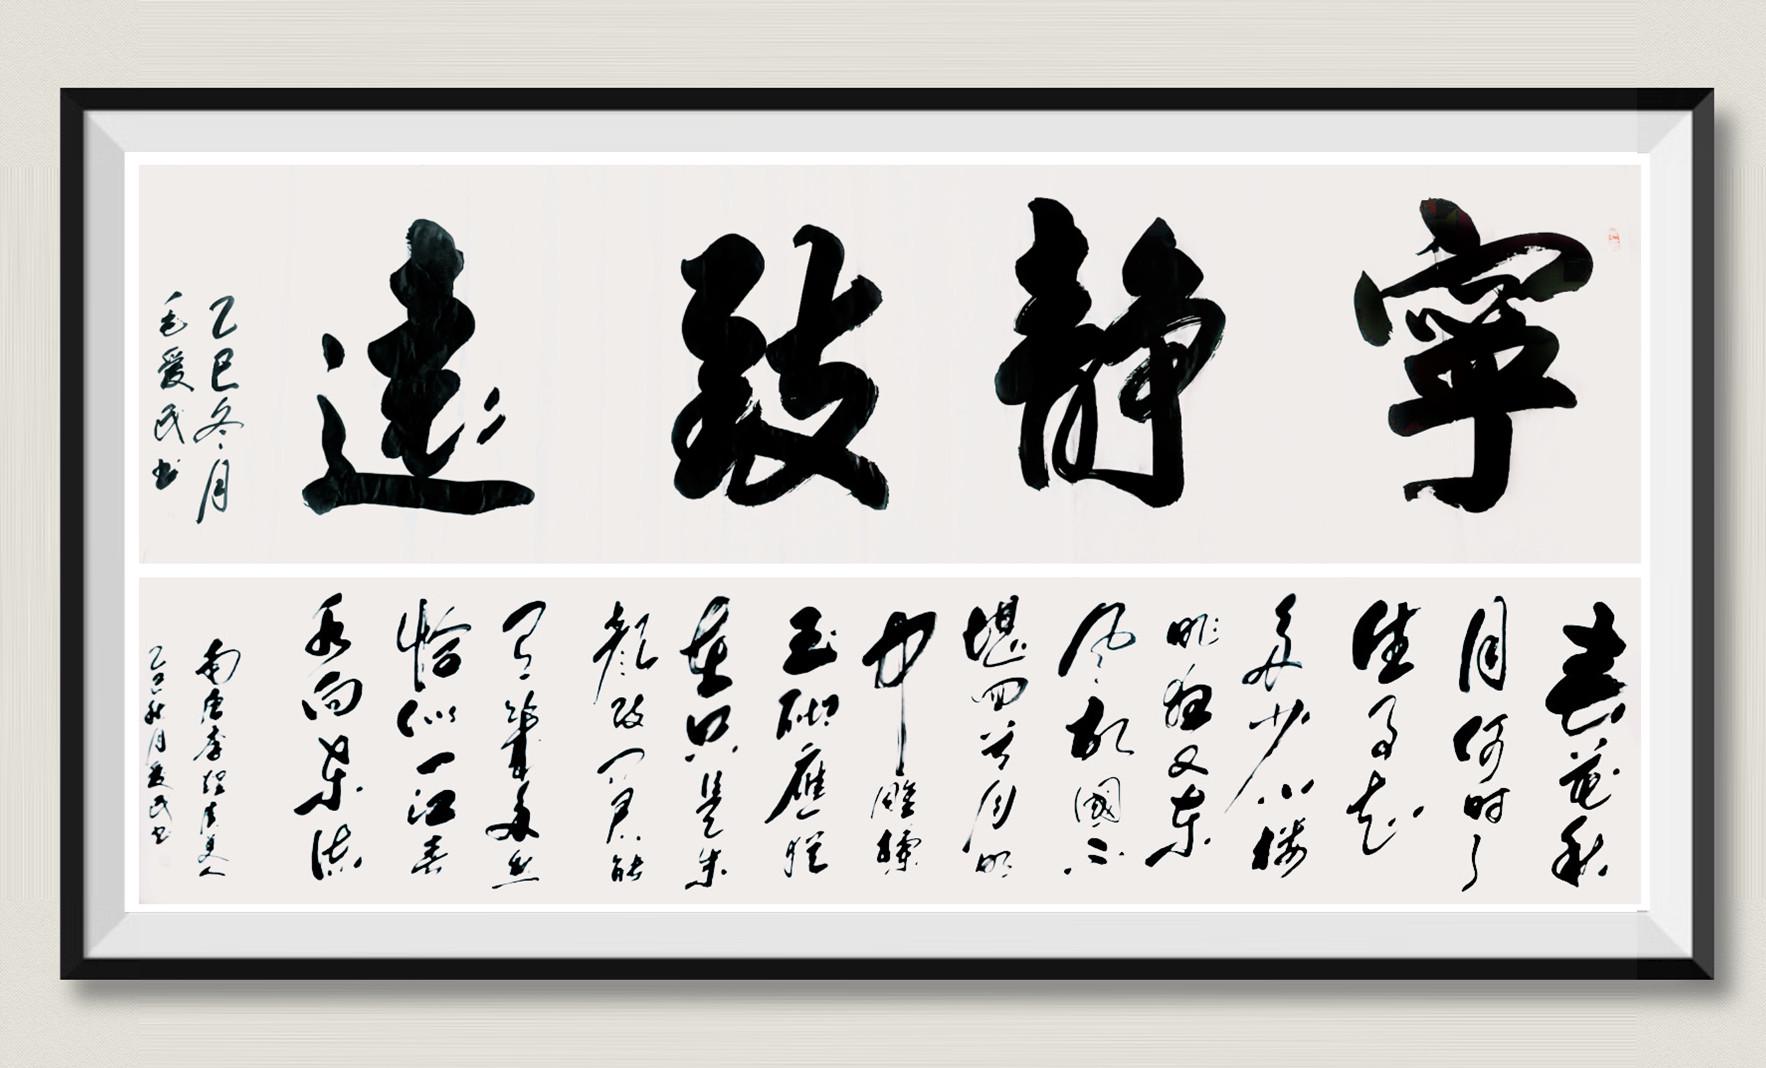 寧靜致遠
乙巳冬月
毛爱民书
春花秋
月何时了
往事知
多少小楼
昨夜又东
风故國不
堪回首月明
中雕欄
玉砌應猶
在只是朱
颜改问君能
有幾多愁
恰似一江春
水向东流
南唐李煜虞美人
乙巳秋月爱民书